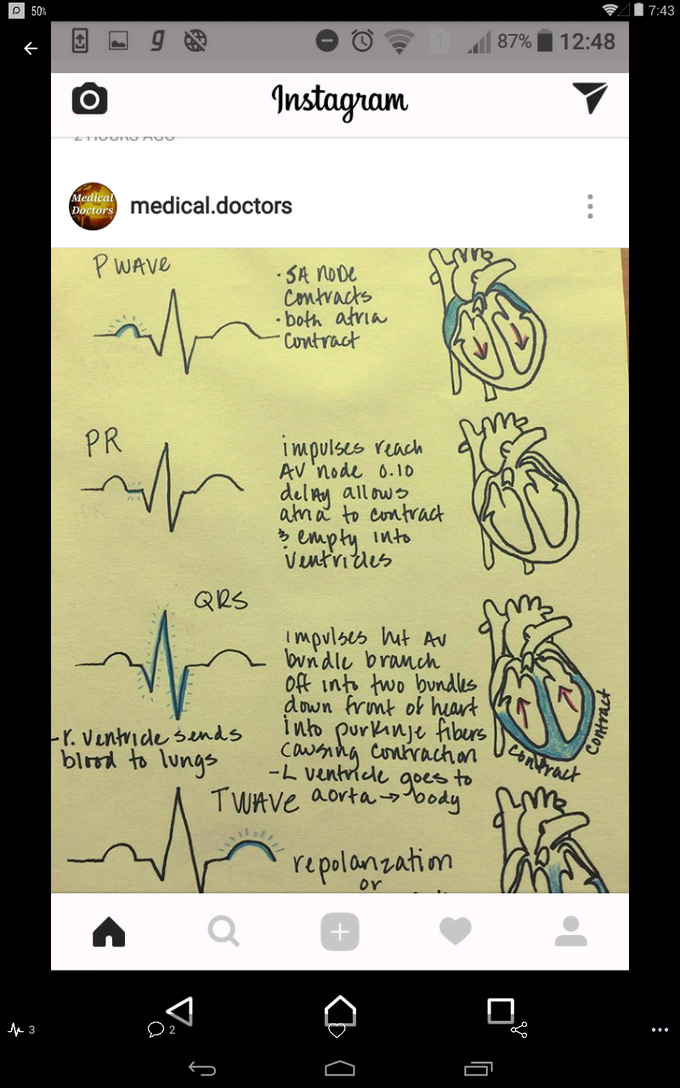 50%
7:43
87% 12:48
Instagram
2 HOURS AGO
Medical Doctors
medical.doctors
P WAVE
• SA NODE
contracts
• both atria
contract
PR
impulses reach
AV node 0.10
delay allows
atria to contract
& empty into
ventricles
QRS
impulses hit AV
bundle branch
off into two bundles
down front of heart
into purkinje fibers
causing contraction
- L ventricle goes to
aorta → body
- r. ventricle sends
blood to lungs
contract
contract
T WAVE
repolarization
or
3
2